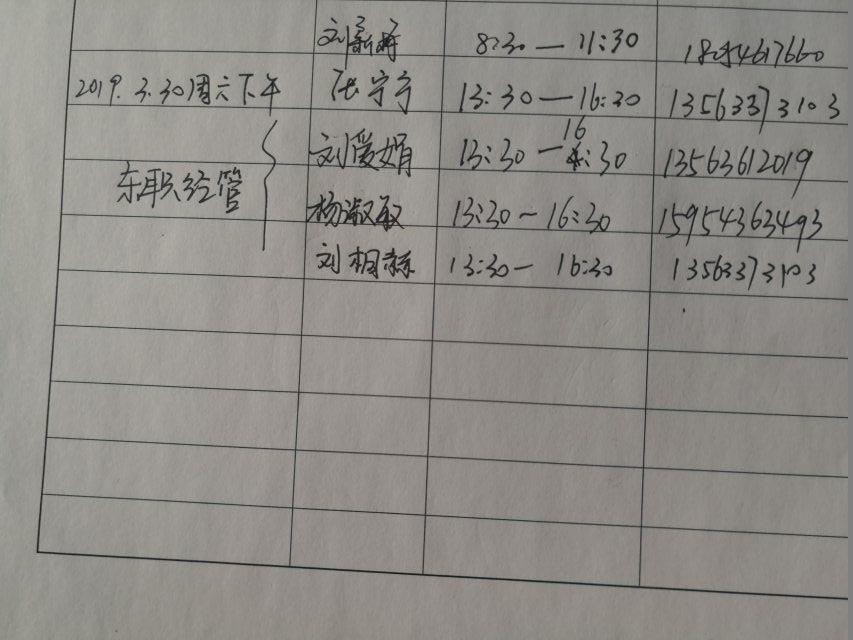 刘新婷 8:30 — 11:30
2019.3.30周六下午 张宁宁 13:30 — 16:30 13563373103
刘爱娟 13:30 — 16:30 13563612019
东职经管 杨淑敏 13:30 — 16:30 15954363493
刘相赫 13:30 — 16:30 13563373103